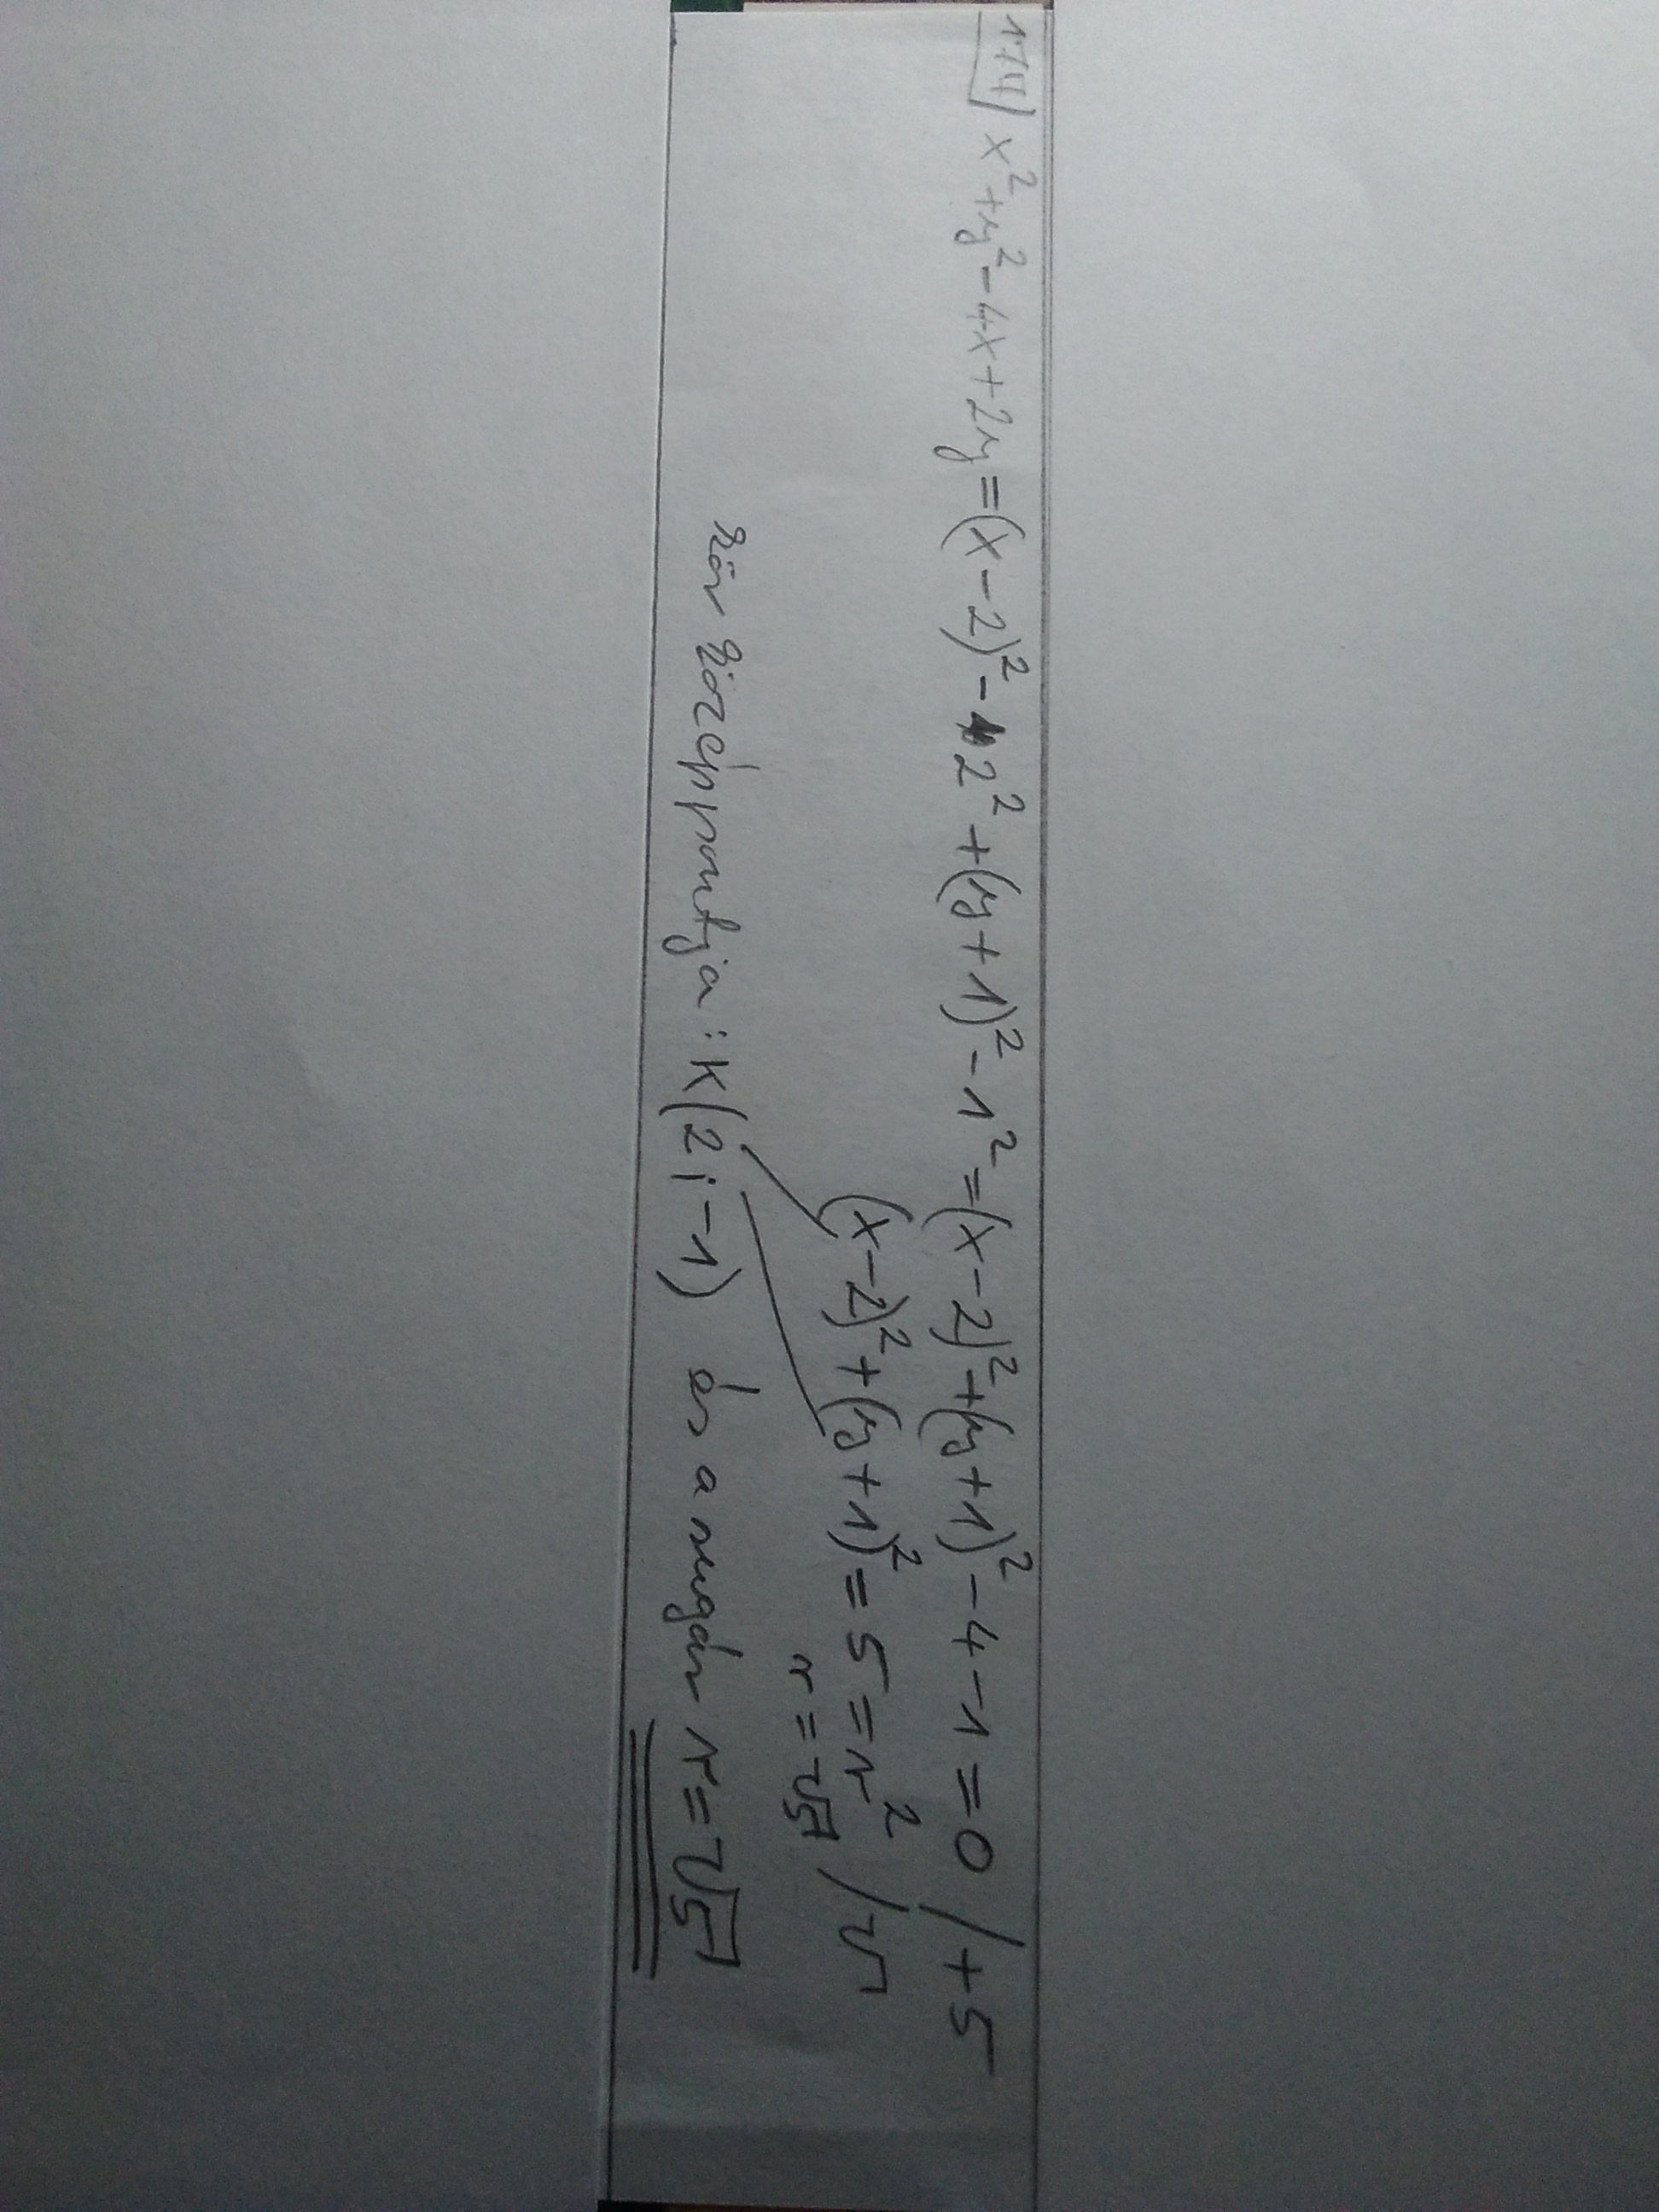 17/4 x²+y²-4x+2y=(x-2)²-2²+(y+1)²-1²=(x-2)²+(y+1)²-4-1=0 /+5
(x-2)²+(y+1)²=5=r² /√
r=√5
kör középpontja: K(2;-1) és a sugár r=√5